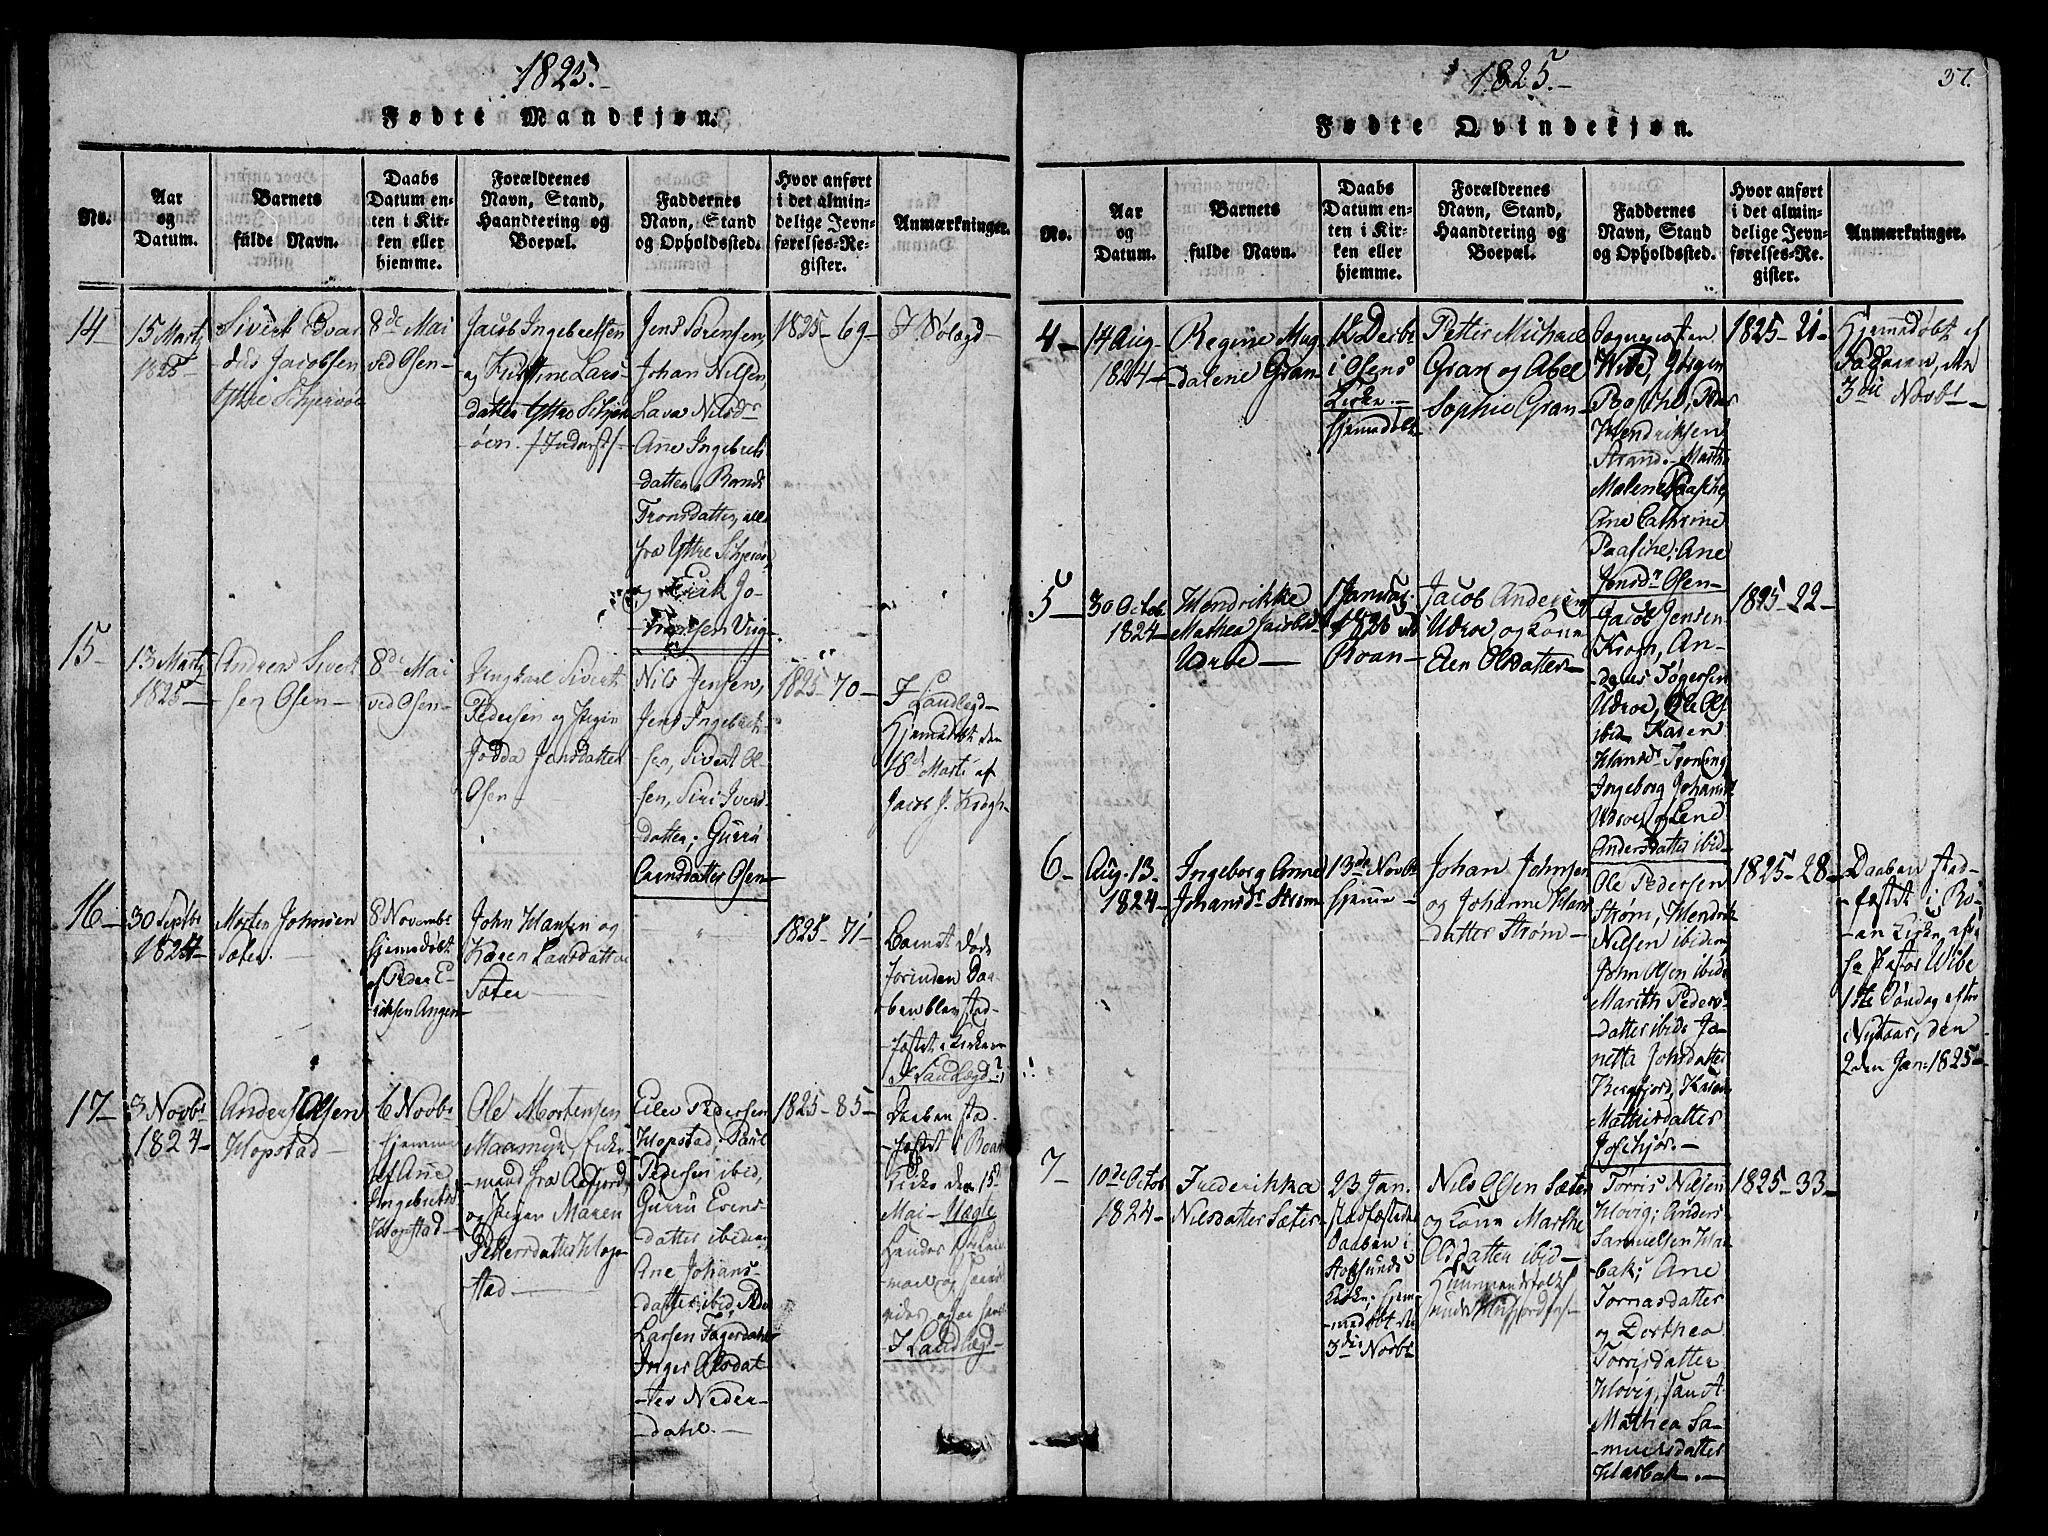 1825.
Fødte Mandkjøn.
No.
Aar
og
Datum.
Barnets
fulde Navn.
Daabs
Datum en-
ten i Kir-
ken eller
hjemme.
Forældrenes
Navn, Stand,
Haandtering og
Boepæl.
Faddernes
Navn, Stand
og Opholdssted.
Hvor anført
i det almin-
delige Jevn-
førelses-Re-
gister.
Anmærkninger.
14
15 Marty
1825
Sivert
Jacobsen
Yttre
8de Mai
ved Osen
Jacob Ingebretsen
og Kirstine Lars-
datter Yttre
Jens Sørensen,
Johan Nilsen,
Lava Nilsdr
Ane Ingebrets
datter, Rands
Tronsdatter, alle
fra Yttre
og Erik Jo-
1825 - 69 -
15
13 Marty
1825
Andreas Sivert
sen Osen
8de Mai
ved Osen
Ungkarl Sivert
Pedersen og Pigen
Jensdatter
Osen
Nils Jensen,
Jens Ingebret-
sen, Sivert Ol-
sen, Siri Ivers-
datter, Gurru
datter Osen
1825 - 70 -
I Landlægd
Hjemmedøbt den
18de Marti af
Jacob J. Krogh
16
30 Septbr
1824
Morten Johnsen
Sæter.
8 Novembr
hjemmedøbt
af Peder E-
riksen Angen
John Hansen og
Karen Larsdatter
Sæter
"
1825 - 71 -
Barnet døde
forinden Daa-
ben blev stad-
fæstet i Kirken
I Landlægd
17
3 Novbr
1824
Anders Olsen
Hopstad
6 Novbr
hjemme
af Ane
Ingebrets
Hopstad
Ole Mortensen
Enke-
mand fra Aafjord,
og Pigen Maren
Pettersdatter Hop-
stad
Eiler Pedersen
Hopstad, Paul
Pedersen ibid,
Gurru Evens-
datter ibidem
Ane Johans-
datter ibid, Peder
Larsen Fagerdahl
Inger Olsdat-
ter Neder-
dahl.
1825 - 85 -
Daaben stad-
fæstet i Roan
Kirke den 15de
Mai - Uægte
I Landlægd
1825.
37.
Fødte Qvindekjøn.
No.
Aar
og
Datum.
Barnets
fulde Navn.
Daabs
Datum en-
ten i Kir-
ken eller
hjemme.
Forældrenes
Navn, Stand,
Haandtering og
Boepæl.
Faddernes
Navn, Stand
og Opholdssted.
Hvor anført
i det almin-
delige Jevn-
førelses-Re-
gister.
Anmærkninger.
4
14 Aug
1824
Regine Mag-
dalene Gran
12 Decbr
i Osens
Kirke.
hjemmedøbt
Petter Michael
Gran og Abel
Sophie Gran
Sognepræsten
Wibe, Jørgen
Pasche, Peder
Hendriksen
Strand. Marthe
Malene Paasche,
Ane Cathrine
Paasche, Ane
Jensdr Osen
1825 - 21 -
Hjemmedøbt af
Faderen, den
3die Novbr
5
30 Octob
1824
Hendrikke
Mathea Jacobsd
Udroe
1 Januar
1825 ved
Roan
Jacob Andersen
Udroe og Kone
Elen Olsdatter
Jacob Jensen
Krogh, An-
deas Tøgersen
Udroe, Ole Ols
ibid Karen
Hansdr
Ingeborg Johansdr
Udroe, og Lena
Andersdatter ibid
1825 - 22 -
6
Aug. 13.
1824
Ingeborg Anne
Johansdr Strøm
13de Novbr
hjemme
Johan Johnsen
og Johanne Hans
datter Strøm
Ole Pedersen
Strøm, Hendrik
Nilsen ibidem
John Olsen ibid
Marith Peders-
datter ibid Ja-
netta Johsdatter
Bergfjord, Karen
Mathisdatter
1825 - 28 -
Daaben stad-
fæstet i Ro-
an Kirke, af
Hr Pastor Wibe
1ste Søndag efter
Nytaar, den
2den Jan. 1825
7
10de Octob
1824
Frederikka
Nilsdatter Sæter
23 Jan.
stadfæstedes
Daaben i
Stoksunds
Kirke; hjem-
medøbt d
3die Novbr
Nils Olsen Sæter
og Kone Marthe
Olsdatter ibid
Huusmandsfolk
Torris Nilsen
Hovig; Anders
Samuelsen Har-
bak; Ane
Tornasdatter
og Dorthea
Torrisdatter
Hovig, samt
Mathea Sa-
muelsdatter
Harbak.
1825 - 33 -